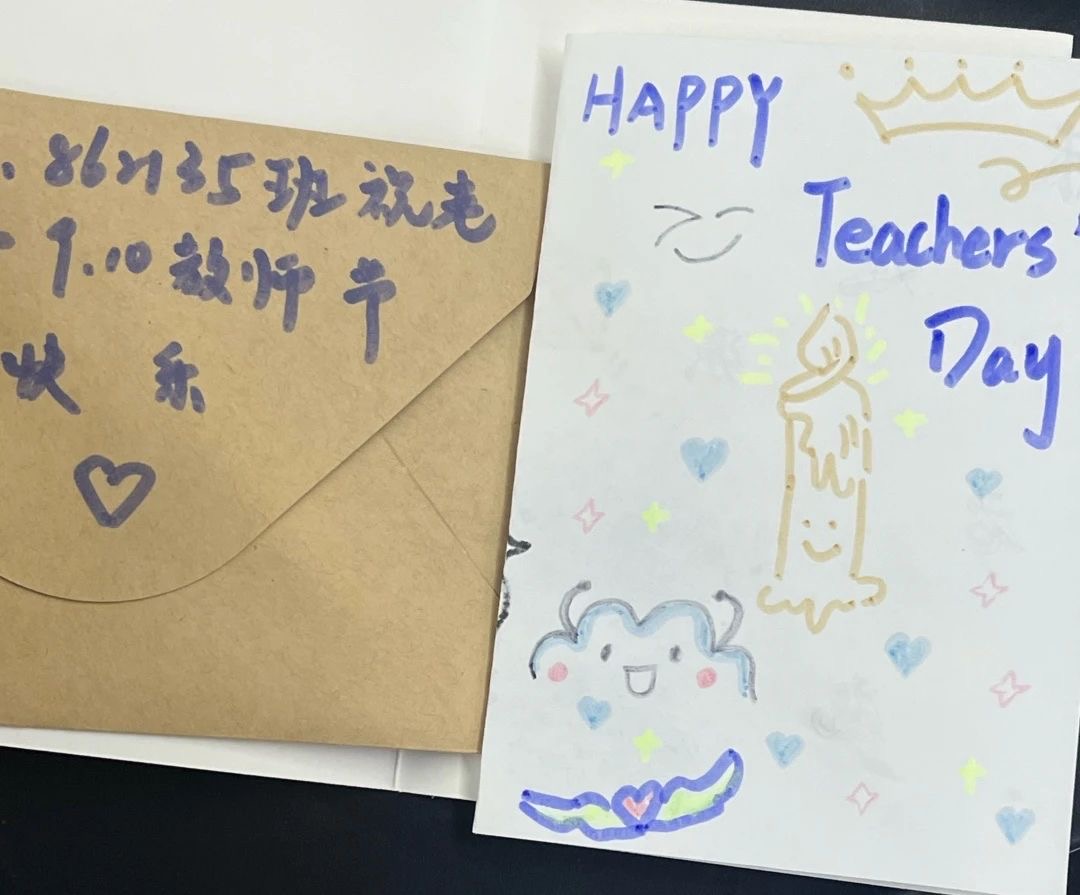 862135班祝老
9.10教师节
快乐
HAPPY
Teachers'
Day